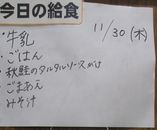 今日の給食
11/30 (木)
・牛乳
・ごはん
・秋鮭のタルタルソースがけ
・ごまあえ
みそ汁